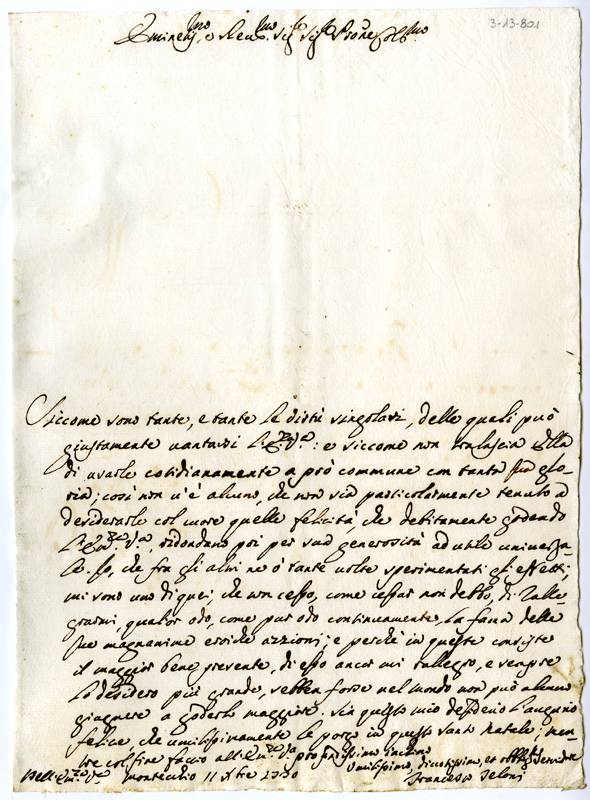 3-13-801
Eminen.mo, e Rev.mo Sig.r Sig.r Pron.e Col.mo
Siccome sono tante, e tante le virtù singolari, delle quali può
giustamente vantarsi l'E.V.a: e siccome non tralascia Ella
di usarle cotidianamente a prò commune con tanta sua glo-
ria; così non v'è alcuno, che non sia particolarmente tenuto a
desiderarle col cuore quelle felicità, che debitamente godendo
l'Em.za V.a, ridondano poi per sua generosità ad utile universa-
le. Io, che fra gli altri ne ò tante volte sperimentati gli effetti,
mi sono uno di quei, che non cesso, come cessar non debbo, di ralle-
grarmi, qualor odo, come pur odo continuamente, la fama delle
sue magnanime eroiche azzioni; e perchè in queste consiste
il maggior bene presente, di esso ancor mi rallegro, e sempre
lo desidero più grande, sebben forse nel mondo non può alcuno
giugnere a goderlo maggiore. Sia questo mio desiderio l'augurio
felice, che umilissimamente le porgo in questo santo Natale; men-
tre col fine faccio all'Em.za V.a profondissimo inchino
Dell'Em.za V.a Montecchio 11 Xbre 1730
Umilissimo, divotissimo, et obblig.mo Servidore
Francesco